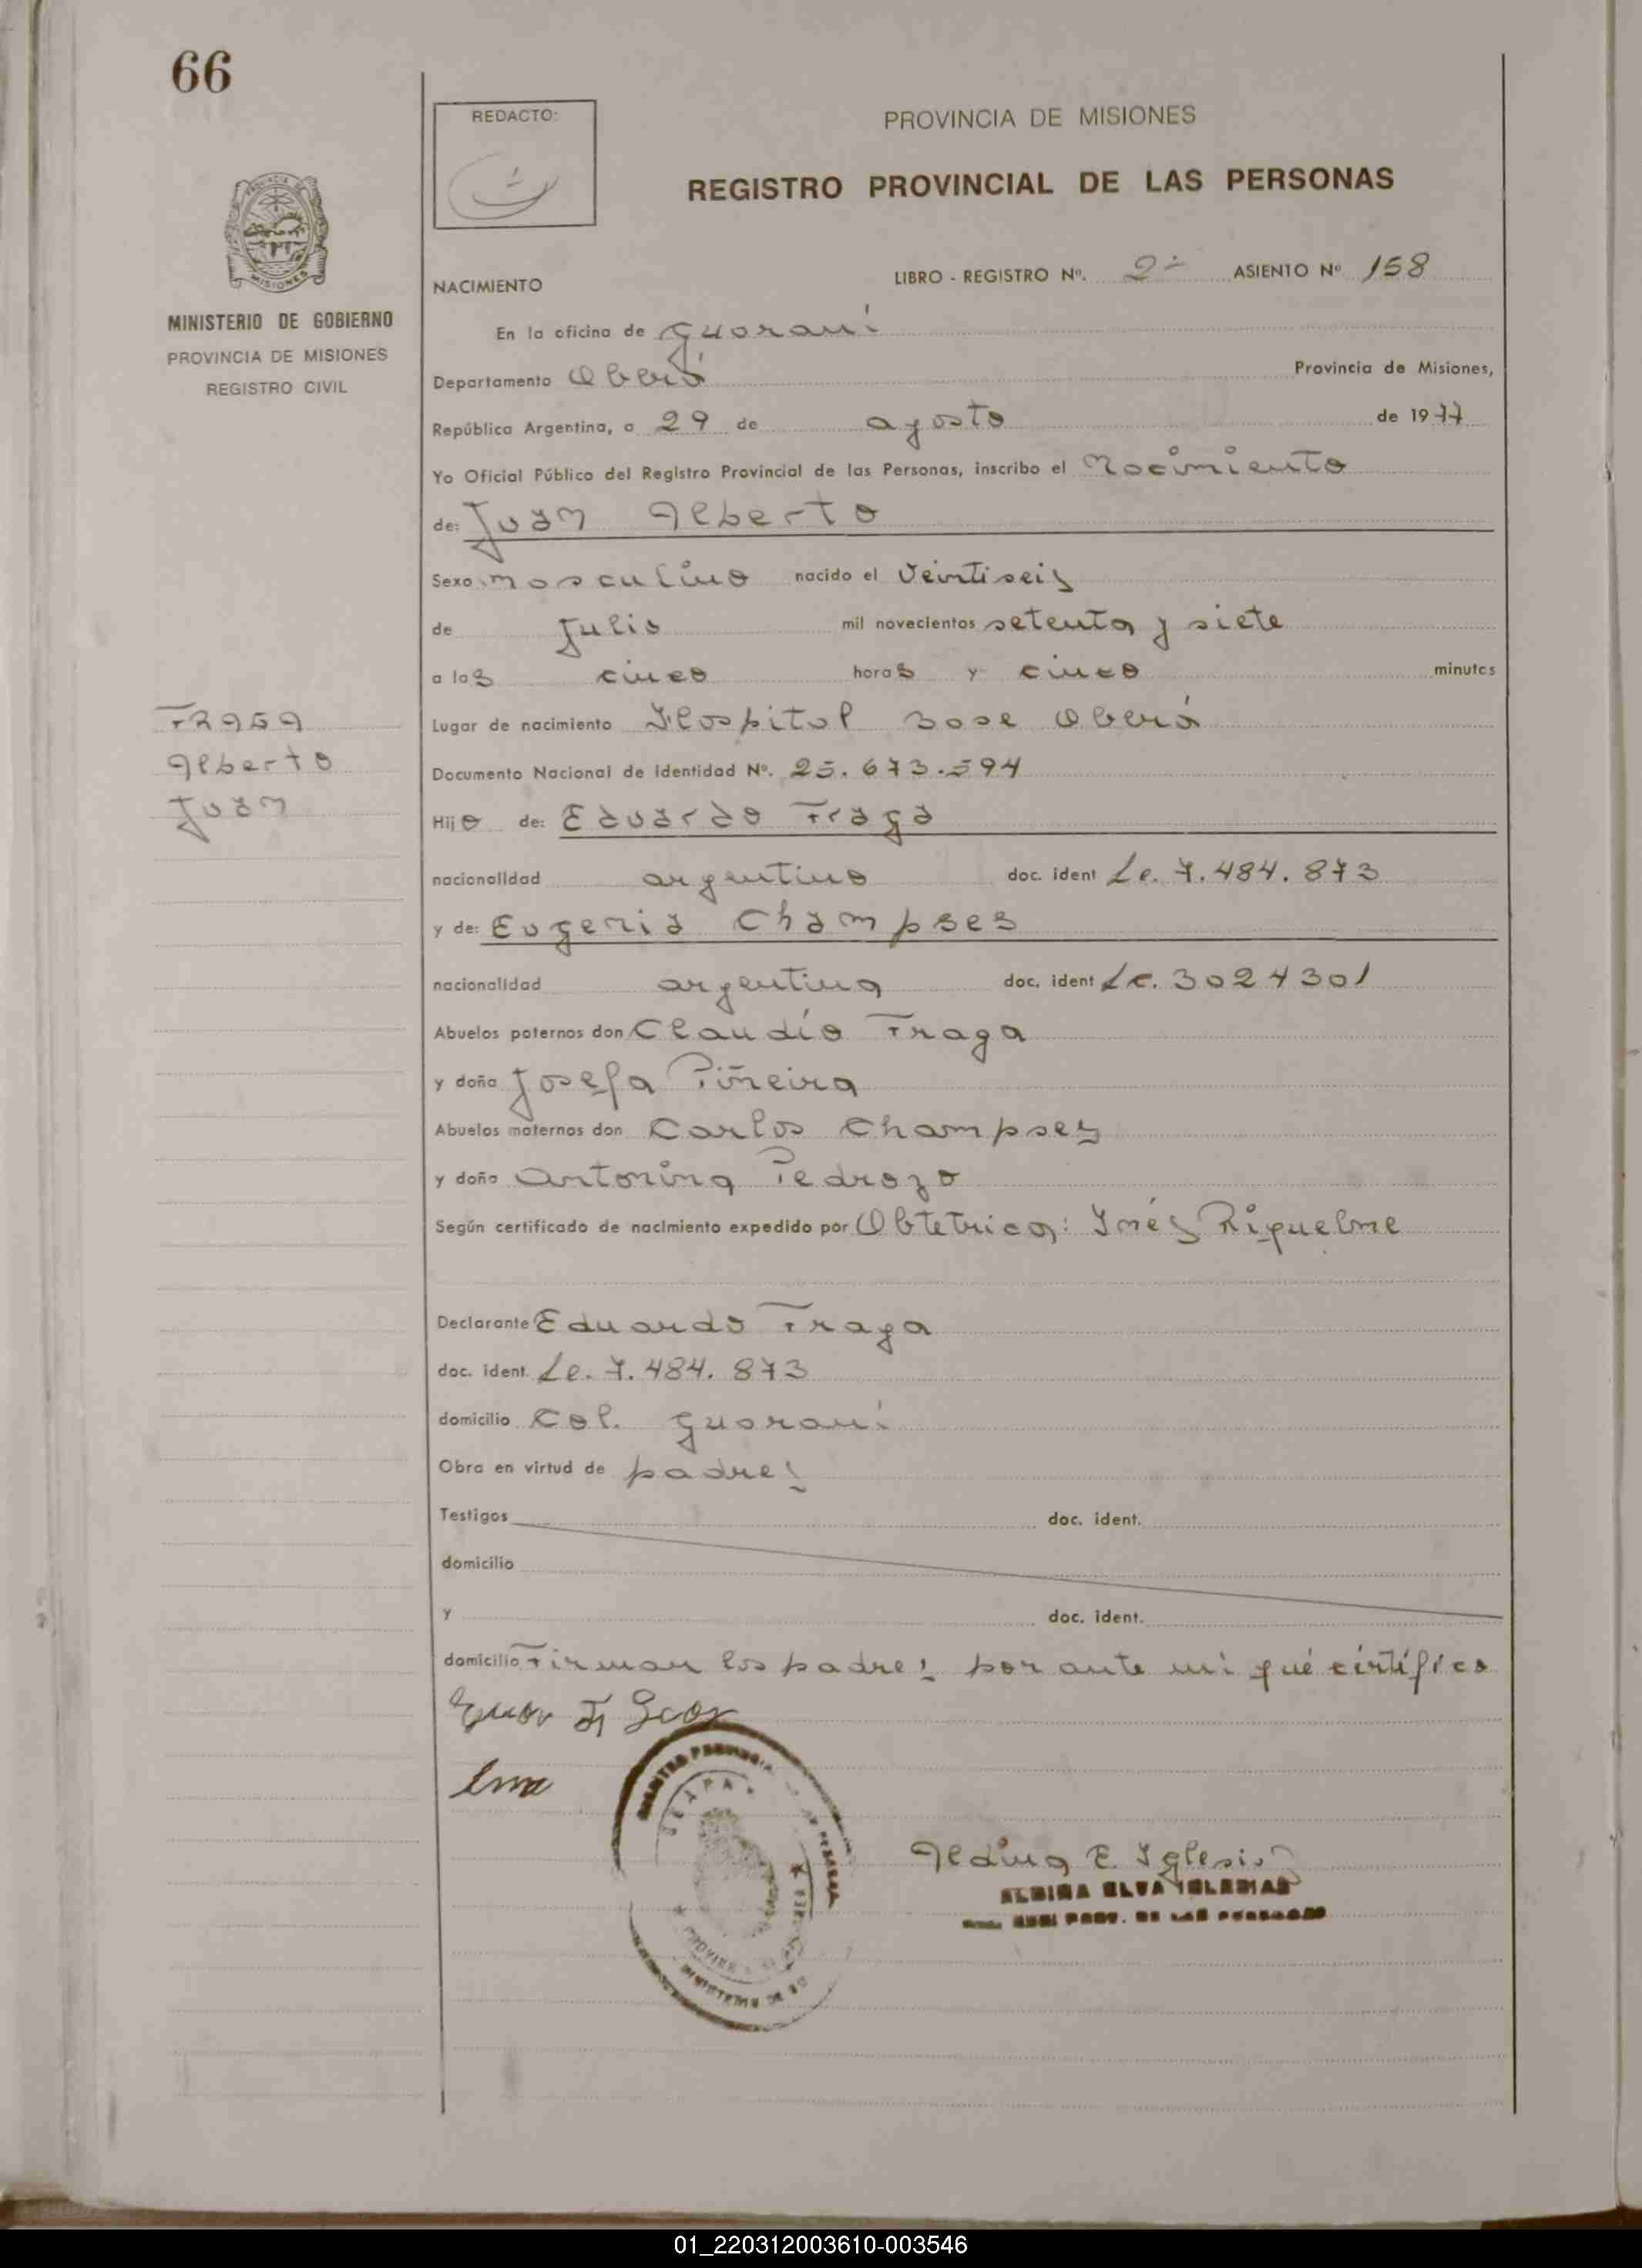 66
REDACTO:
PROVINCIA DE MISIONES
REGISTRO PROVINCIAL DE LAS PERSONAS
MISIONES
MINISTERIO DE GOBIERNO
PROVINCIA DE MISIONES
REGISTRO CIVIL
NACIMIENTO LIBRO - REGISTRO Nº. 2º ASIENTO Nº 158
En la oficina de Guaraní
Departamento Oberá Provincia de Misiones,
República Argentina, a 29 de agosto de 1977
Yo Oficial Público del Registro Provincial de las Personas, inscribo el Nacimiento
de: Juan Alberto
Sexo masculino nacido el Veintiseis
de Julio mil novecientos setenta y siete
a las cinco horas y cinco minutos
Fraga
Alberto
Juan
Lugar de nacimiento Hospital Oberá
Documento Nacional de Identidad Nº. 25.673.594
Hijo de: Eduardo Fraga
nacionalidad argentino doc. ident Le. 7.484.873
y de: Eugenia Champses
nacionalidad argentina doc. ident Lc. 3024301
Abuelos paternos don Claudio Fraga
y doña Josefa Piñeira
Abuelos maternos don Carlos Champses
y doña Antonina Pedrozo
Según certificado de nacimiento expedido por Obtetrica: Inés Riquelme
Declarante Eduardo Fraga
doc. ident. Le. 7.484.873
domicilio Col. Guaraní
Obra en virtud de padre!
Testigos doc. ident.
domicilio
y doc. ident.
domicilio Firman los padres por ante mi qué cértífico
Albina E. Iglesias
ALBINA ELVA IGLESIAS
PROV. DE LAS PERSONAS
MINISTERIO DE
01_220312003610-003546